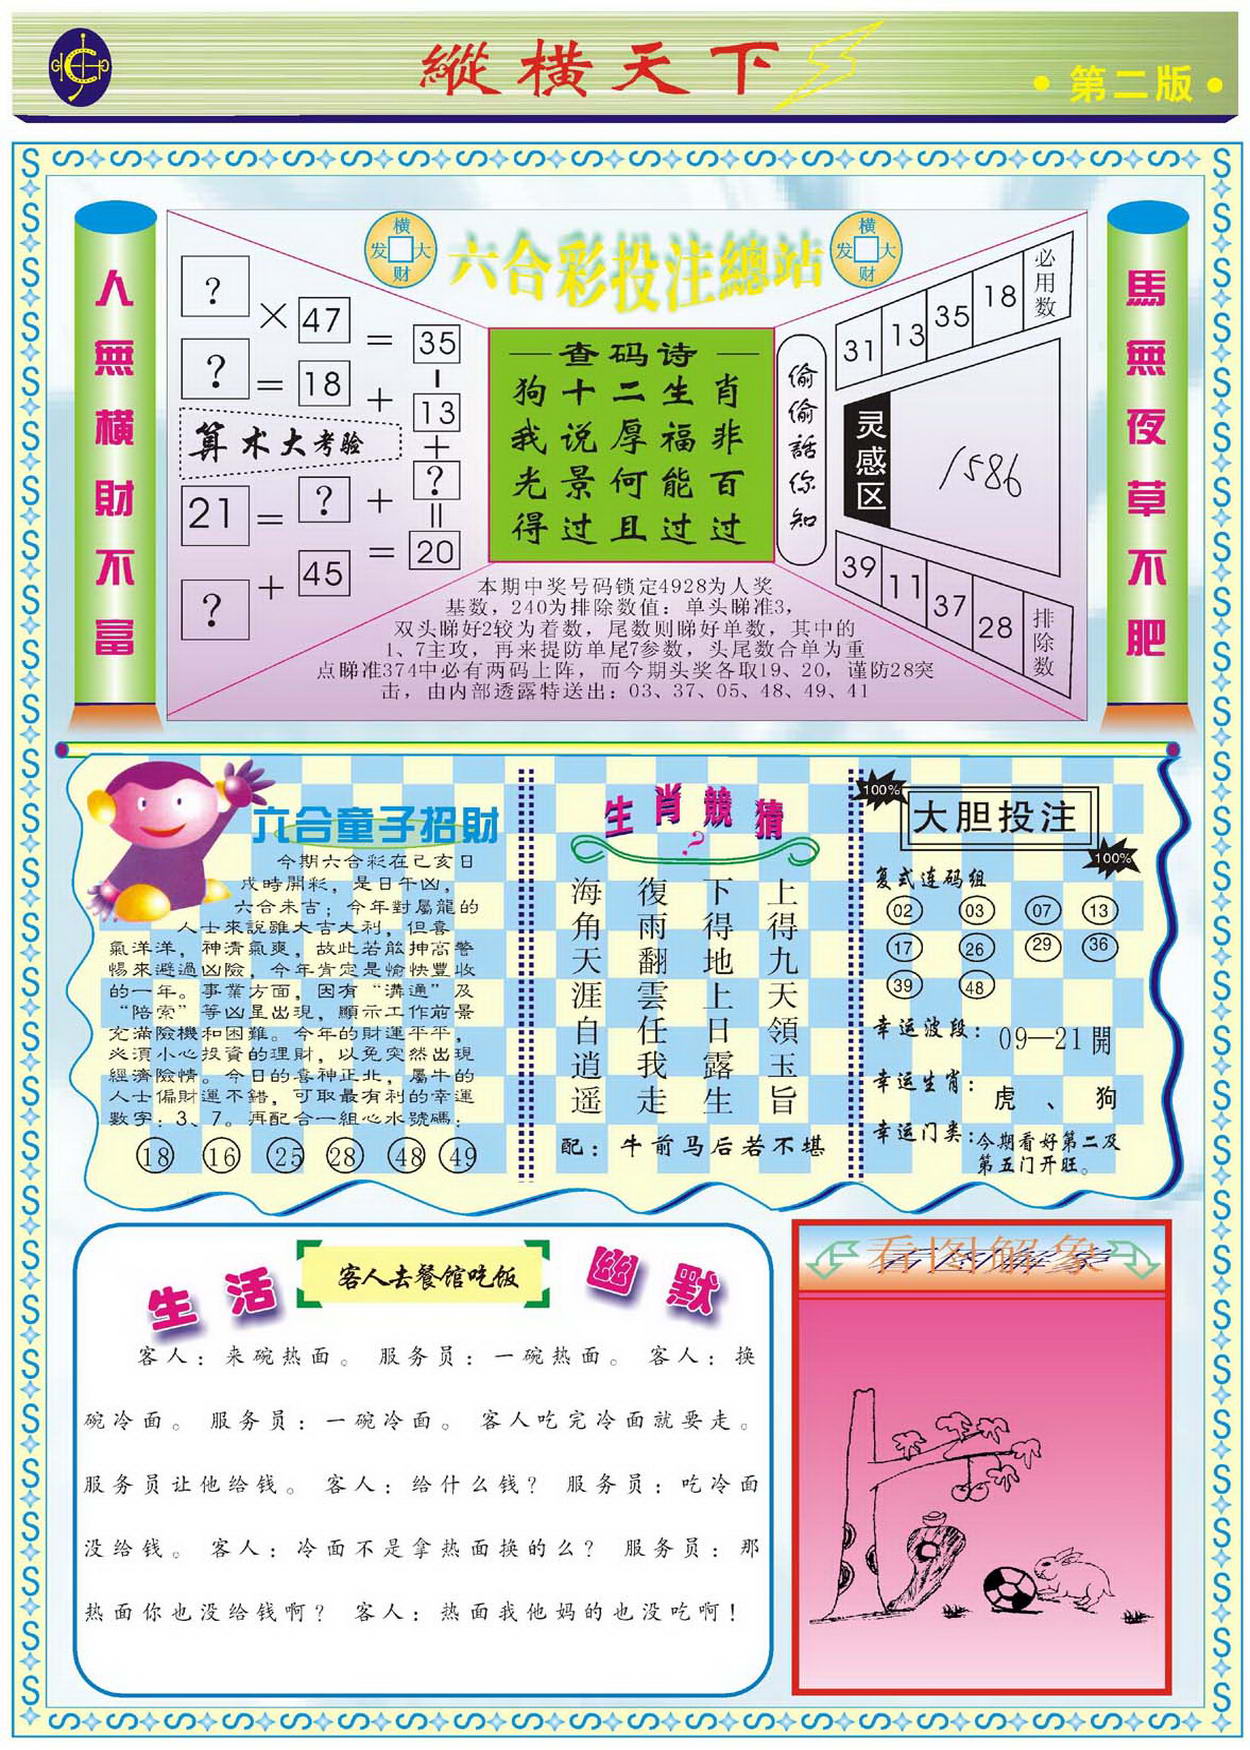 縱橫天下
·第二版·
人無橫財不富
馬無夜草不肥
橫大财发
六合彩投注總站
橫大财发
? × 47 = 35
? = 18 + 13
算术大考验
21 = ? + ?
? + 45 = 20
查码诗
狗十二生肖
我说厚福非
光景何能百
得过且过过
偷偷話你知
31 13 35 18 必用数
灵感区
1586
39 11 37 28 排除数
本期中奖号码锁定4928为人奖
基数，240为排除数值：单头睇准3，
双头睇好2较为着数，尾数则睇好单数，其中的
1、7主攻，再来提防单尾7参数，头尾数合单为重
点睇准374中必有两码上阵，而今期头奖各取19、20，谨防28突
击，由内部透露特送出：03、37、05、48、49、41
六合童子招財
今期六合彩在己亥日
戌時開彩，是日午凶，
六合未吉；今年對屬龍的
人士來說雖大吉大利，但喜
氣洋洋，神清氣爽，故此若能押高警
惕來避過凶險，今年肯定是愉快豐收
的一年。事業方面，因有“溝通”及
“陪索”等凶星出現，顯示工作前景
充滿險機和困難。今年的財運平平，
必須小心投資的理財，以免突然出現
經濟險情。今日的喜神正北，屬牛的
人士偏財運不錯，可取最有利的幸運
數字：3、7。再配合一組心水號碼：
18 16 25 28 48 49
生肖競猜
?
上得九天領玉旨
下得地上日露生
復雨翻雲任我走
海角天涯自逍遥
配：牛前马后若不堪
100%
大胆投注
100%
复式连码组
02 03 07 13
17 26 29 36
39 48
幸运波段：09—21開
幸运生肖：虎、狗
幸运门类：今期看好第二及
第五门开旺。
生活
客人去餐馆吃饭
幽默
客人：来碗热面。 服务员：一碗热面。 客人：换
碗冷面。 服务员：一碗冷面。 客人吃完冷面就要走。
服务员让他给钱。 客人：给什么钱？ 服务员：吃冷面
没给钱。 客人：冷面不是拿热面换的么？ 服务员：那
热面你也没给钱啊？ 客人：热面我他妈的也没吃啊！
看图解象